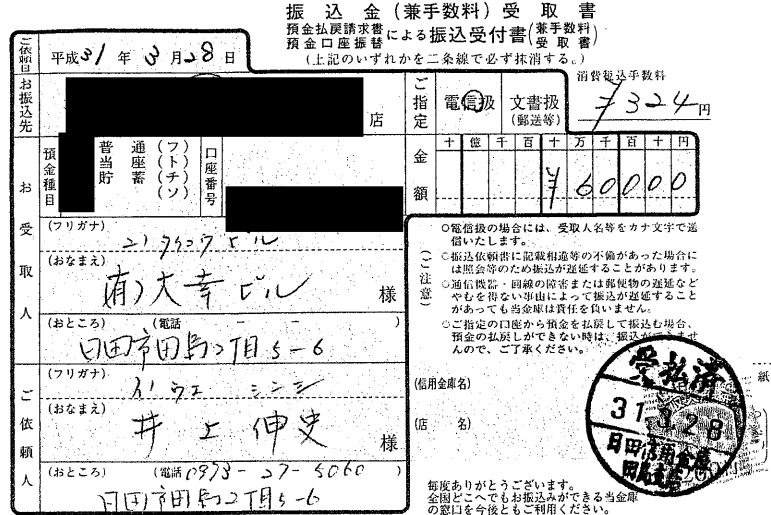 振込金(兼手数料)受取書
預金払戻請求書
預金口座振替 による振込受付書 (兼手数料 受取書)
(上記のいずれかを二条線で必ず抹消する。)
ご依頼日 平成31年3月28日
お振込先 店
ご指定 電信扱 文書扱
(郵送等)
消費税込手数料
¥324円
預金種目
普 通 (フ)
当 座 (ト)
貯 蓄 (チ)
(ソ)
口座番号
金額
十 億 千 百 十 万 千 百 十 円
¥60000
お受取人
(フリガナ)
(おなまえ)
(有)大幸ビル 様
(おところ) (電話 - - )
日田市田島2丁目5-6
ご依頼人
(フリガナ)
イノウエ シンシ
(おなまえ)
井上伸史 様
(おところ) (電話 0973-27-5060)
日田市田島2丁目5-6
(ご注意)
○電信扱の場合には、受取人名等をカナ文字で送
信いたします。
○振込依頼書に記載相違等の不備があった場合に
は照会等のため振込が遅延することがあります。
○通信機器・回線の障害または郵便物の遅延など
やむを得ない事由によって振込が遅延すること
があっても当金庫は責任を負いません。
○ご指定の口座から預金を払戻して振込む場合、
預金の払戻しができない時は、振込ができませ
んので、ご了承ください。
(信用金庫名)
(店 名)
紙
受払済
31.3.28
日田信用金庫
田島支店
毎度ありがとうございます。
全国どこへでもお振込みができる当金庫
の窓口を今後ともご利用ください。